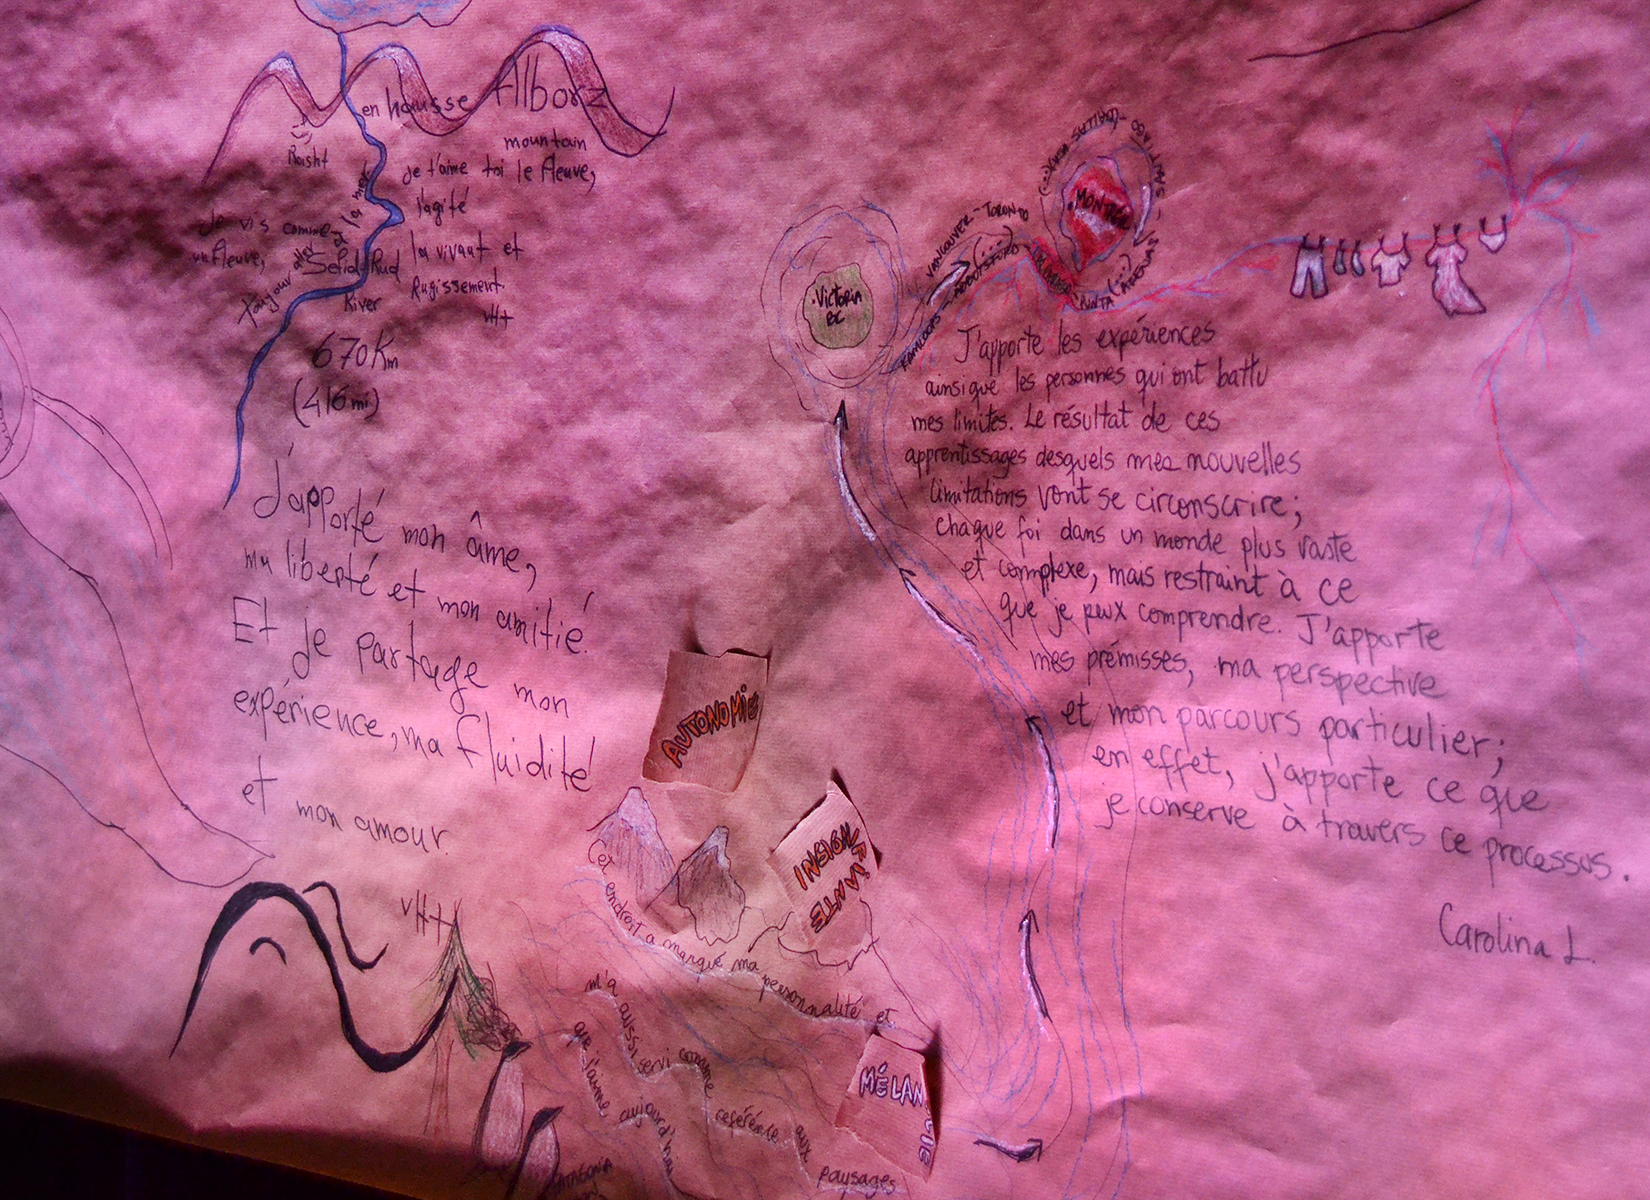 en hausse Alborz
mountain
Rasht
je t'aime toi le fleuve,
l'agité
la vivant et
Rugissement.
vH+
Je vis comme
un fleuve,
Toujour aller et la mer
Sefid Rud
River
670 Km
(416 mi)
J'apporté mon âme,
ma liberté et mon amitié.
Et je partage mon
expérience, ma fluidité
et mon amour.
vH+
VICTORIA
BC
VANCOUVER - TORONTO
(...)
KAMLOOPS - ABBOTSFORD
SANTIAGO - DALLAS
PUNTA ARENAS
(...)
J'apporte les expériences
ainsi que les personnes qui ont battu
mes limites. Le résultat de ces
apprentissages desquels mes nouvelles
limitations vont se circonscrire;
chaque foi dans un monde plus vaste
et complexe, mais restraint à ce
que je peux comprendre. J'apporte
mes prémisses, ma perspective
et mon parcours particulier;
en effet, j'apporte ce que
je conserve à travers ce processus.
Carolina L.
AUTONOMIE
INSIGNIFIANTE
MÉLANCOLIE
Cet endroit a marqué ma personnalité et
m'a aussi servi comme reférénce aux paysages
que j'aime aujourd'hui
PATAGONIA